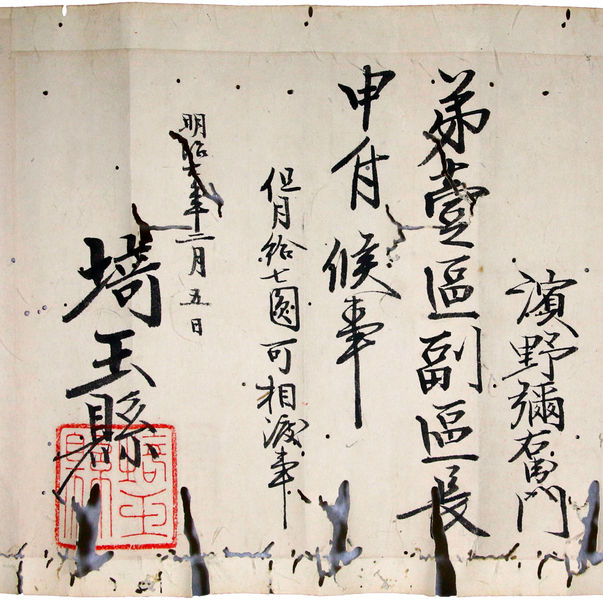 濱野彌右衛門
第壹區副區長
申付候事
但月給七圓可相渡事
明治七年二月五日
埼玉縣
埼玉縣印